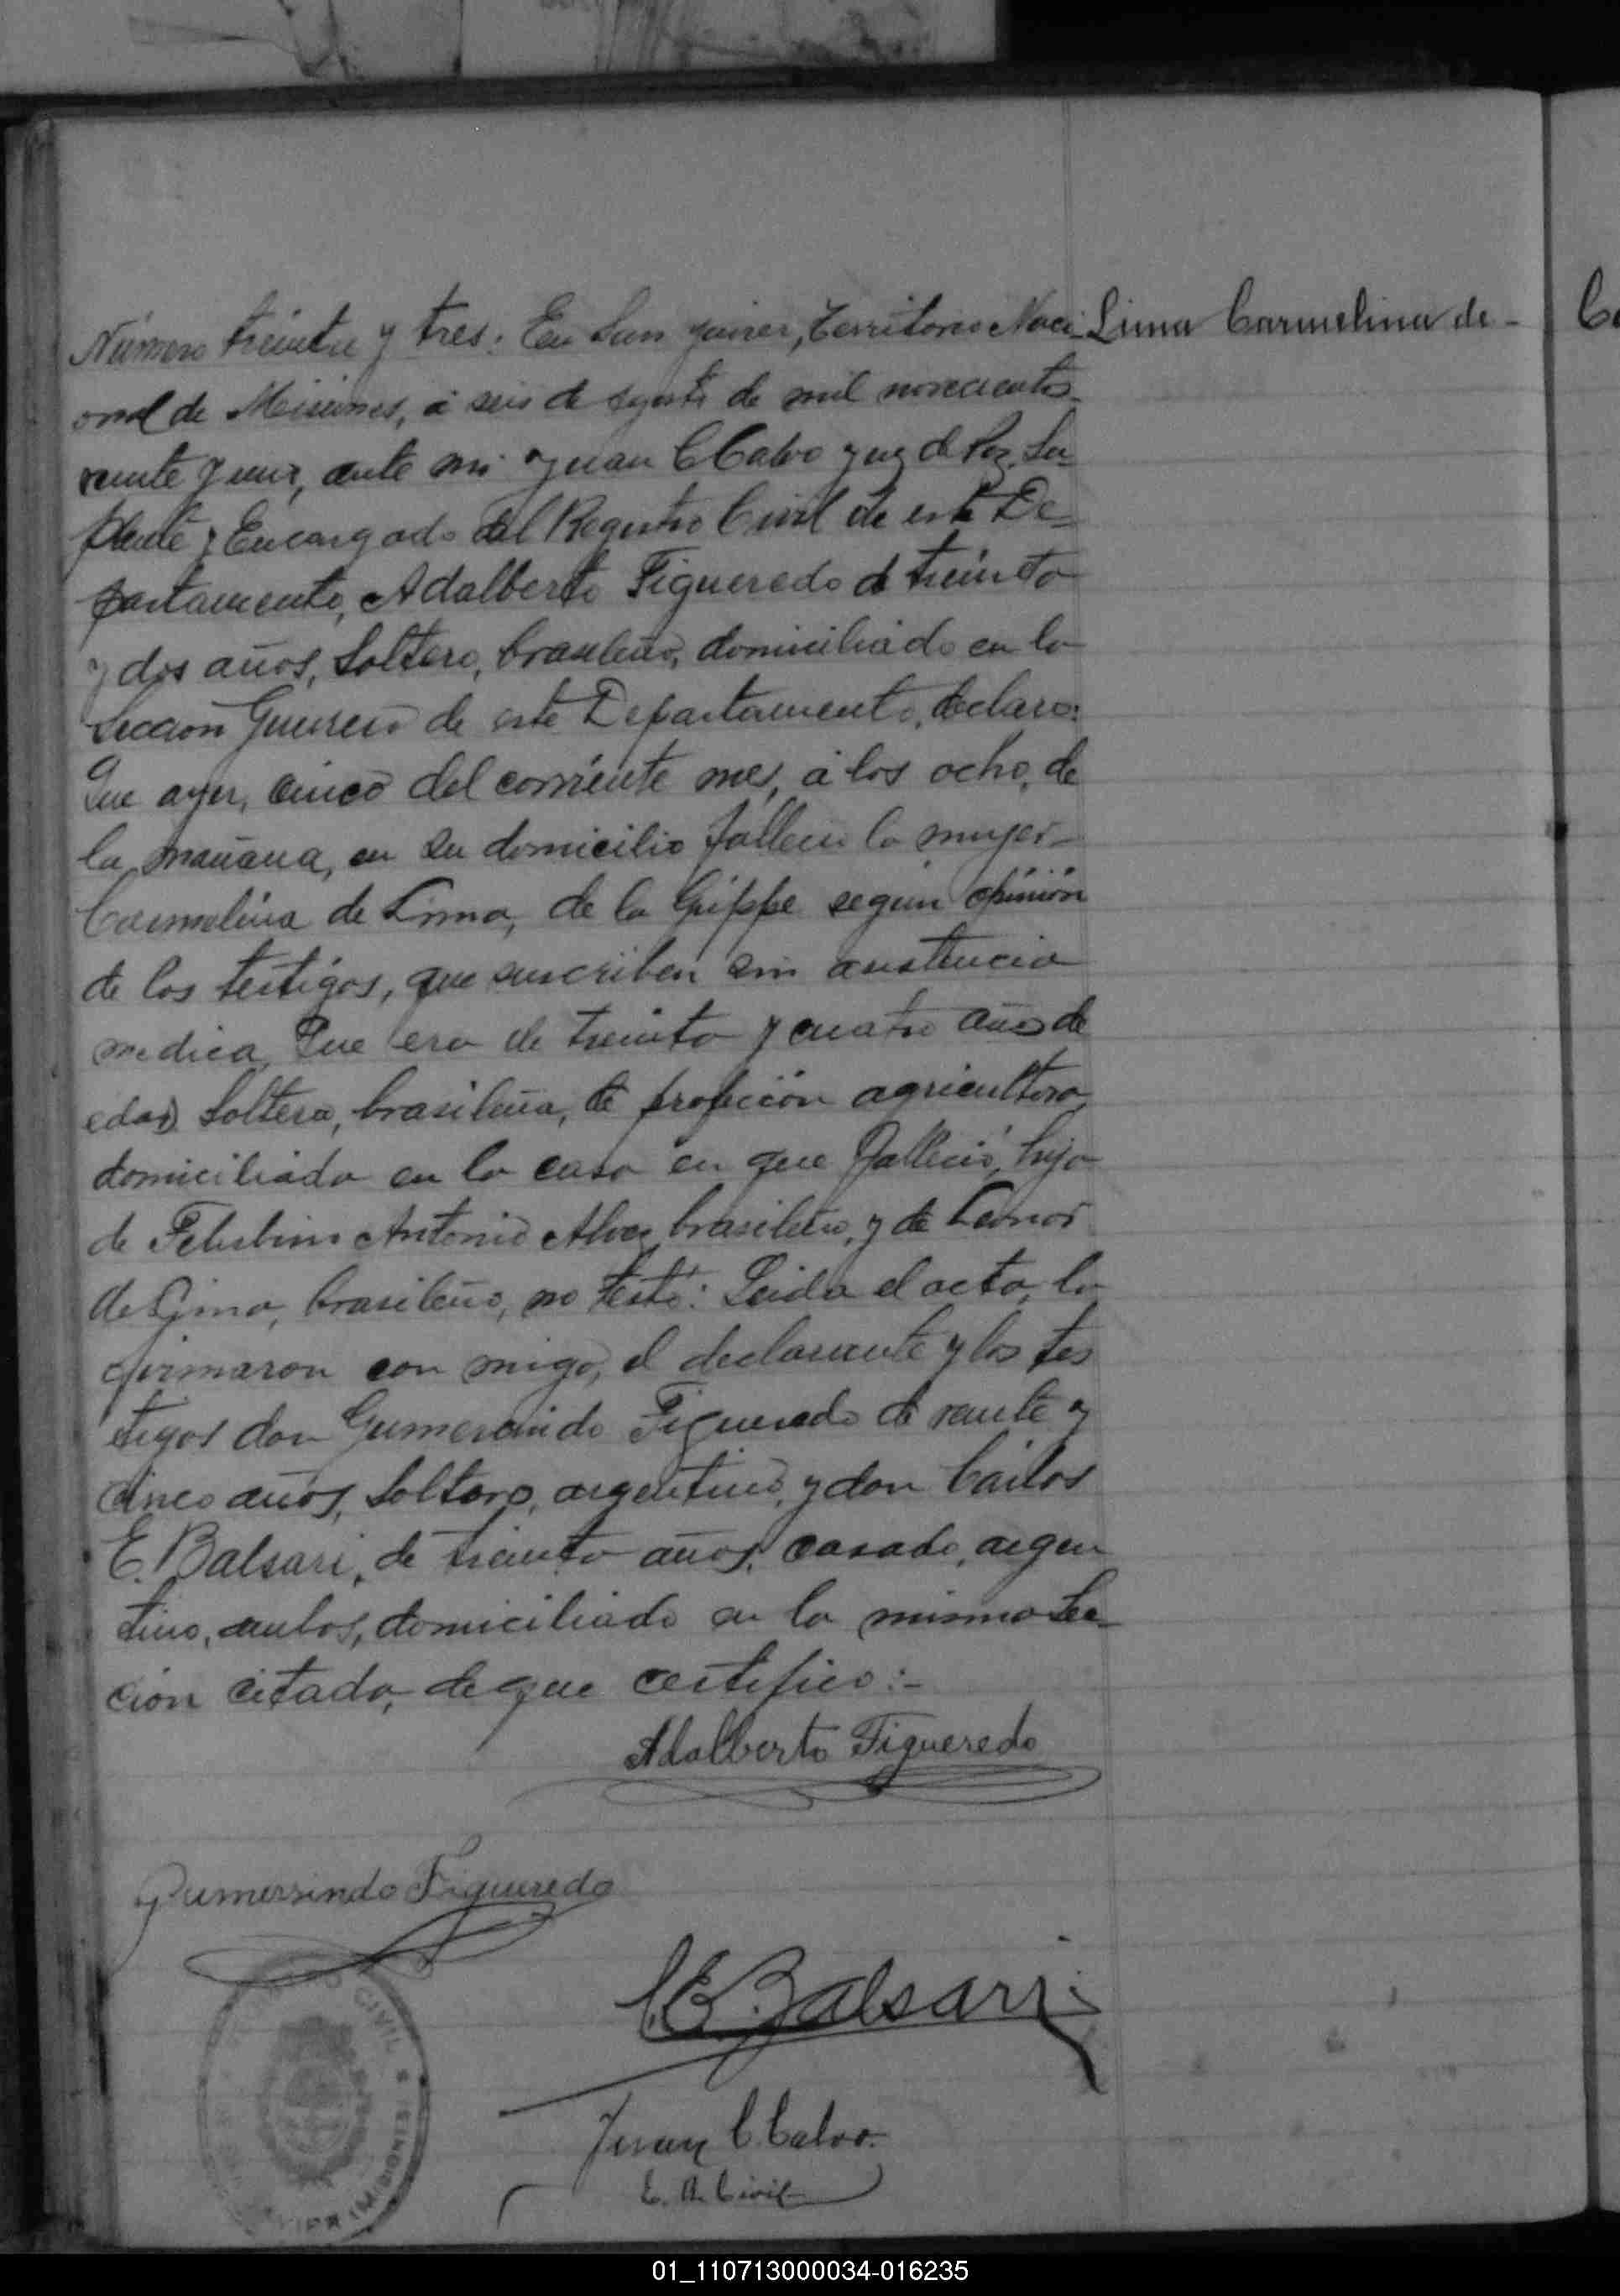 Número treinta y tres: En San Javier, Territorio Naci-
Lima Carmelina de -
onal de Misiones, á seis de agosto de mil novecientos
veinte y uno, ante mi Juan C Calvo Juez de Paz Su-
plente y Encargado del Registro Civil de este De-
partamento, Adalberto Figueredo de treinta
y dos años, Soltero, brasileño, domiciliado en la
Seccion Guerrero de este Departamento, declaro:
Que ayer, cinco del corriente mes, á las ocho, de
la mañana, en su domicilio fallecio la mujer
Carmelina de Lima, de la Grippe según opinión
de los testigos, que suscriben sin asistencia
medica, Que era de treinta y cuatro años de
edad Soltera, brasileña, de profeción agricultora,
domiciliada en la casa en que falleció, hija
de Antonio Alves, brasileño, y de Leonor
de Lima, brasileña, no testó: Leida el acta, la
firmaron con migo, el declarante y los tes
tigos don Gumercindo Figueredo de veinte y
cinco años, Soltero, argentino, y don Carlos
E. Balsari, de treinta años, casado, argen
tino, ambos, domiciliado en la misma Sec-
ción citada, de que certifico:-
Adalberto Figueredo
Gumersindo Figueredo
C.E. Balsari
Juan C. Calvo.
E. R. Civil
CIVIL
MISIONES
01_110713000034-016235